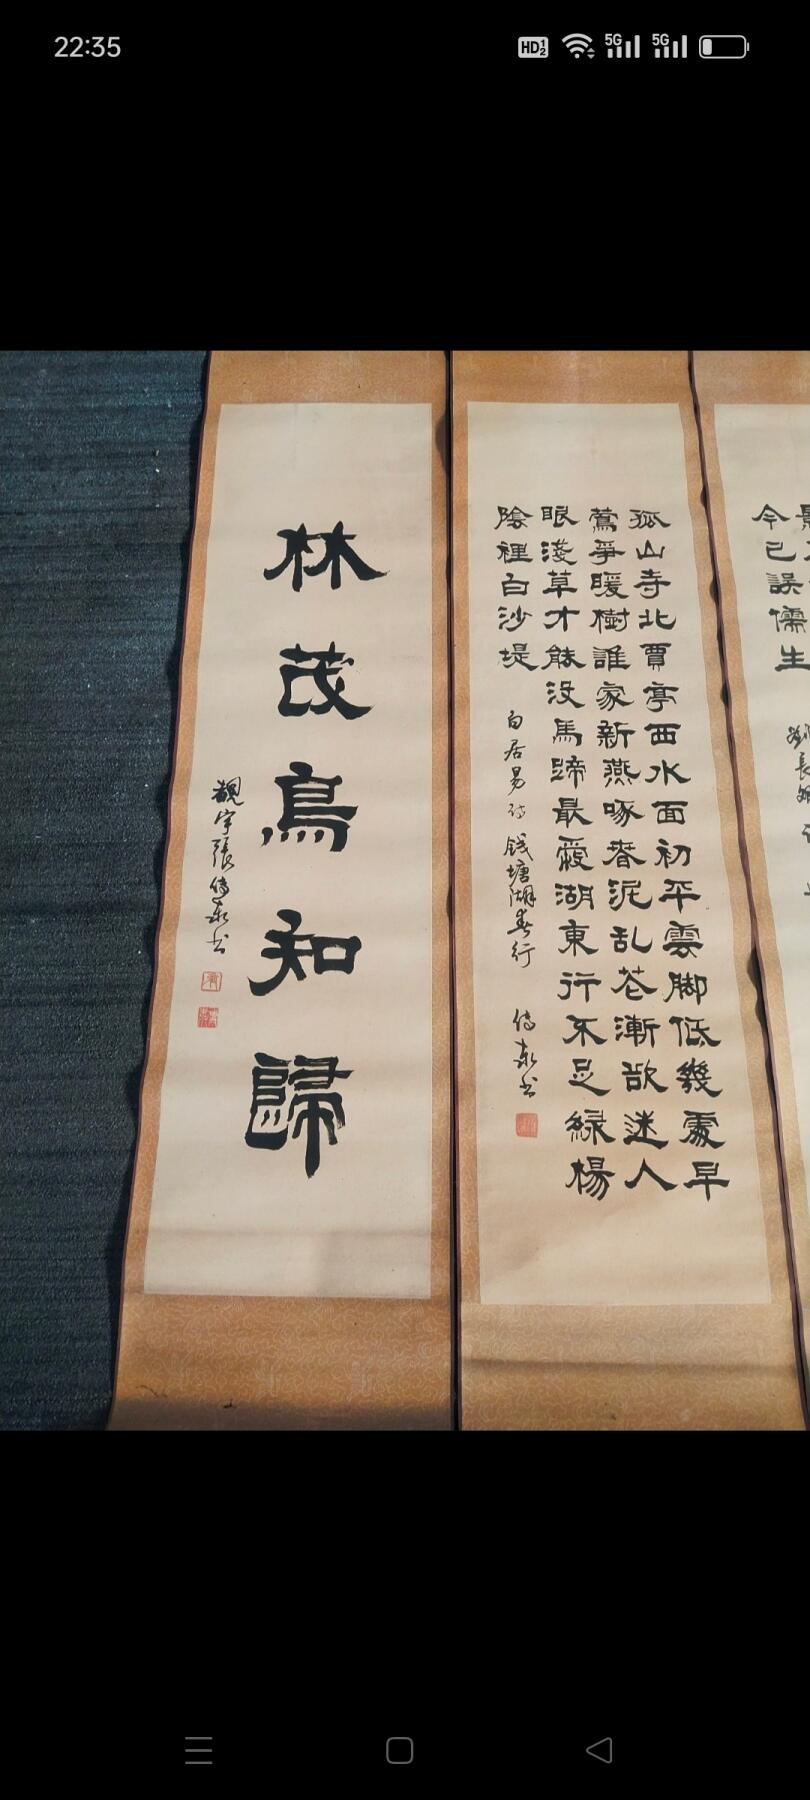 22:35
HD 1 2
5G
5G
林茂鳥知歸
觀宇張傳泰书
孤山寺北賈亭西水面初平雲脚低幾處早
鶯爭暖樹誰家新燕啄春泥乱花漸欲迷人
眼淺草才能没馬蹄最愛湖東行不足緑楊
陰裡白沙堤
白居易诗 钱塘湖春行
今已誤儒生